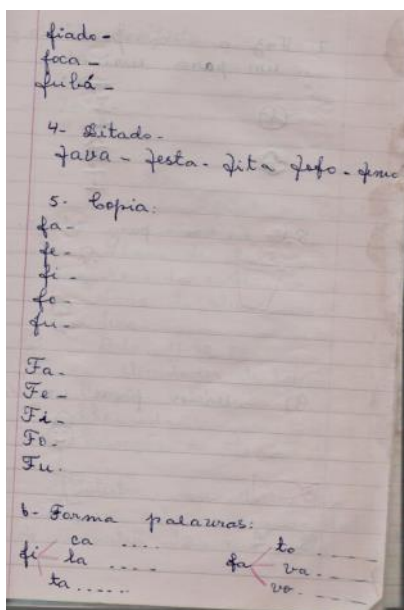 fiado -
foca -
fubá -
4- Ditado.
fava - festa. fita fofo - fumo
5- Copia:
fa -
fe -
fi -
fo -
fu -
Fa -
Fe -
Fi -
Fo -
Fu.
6- Forma palavras:
fi ca ....
la ....
ta ......
fa to ......
va ......
vo ......